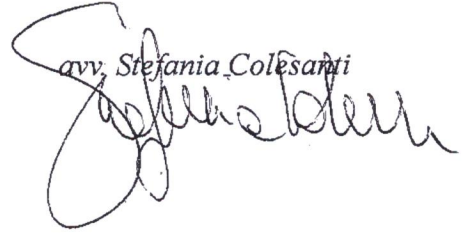 avv. Stefania Colesanti